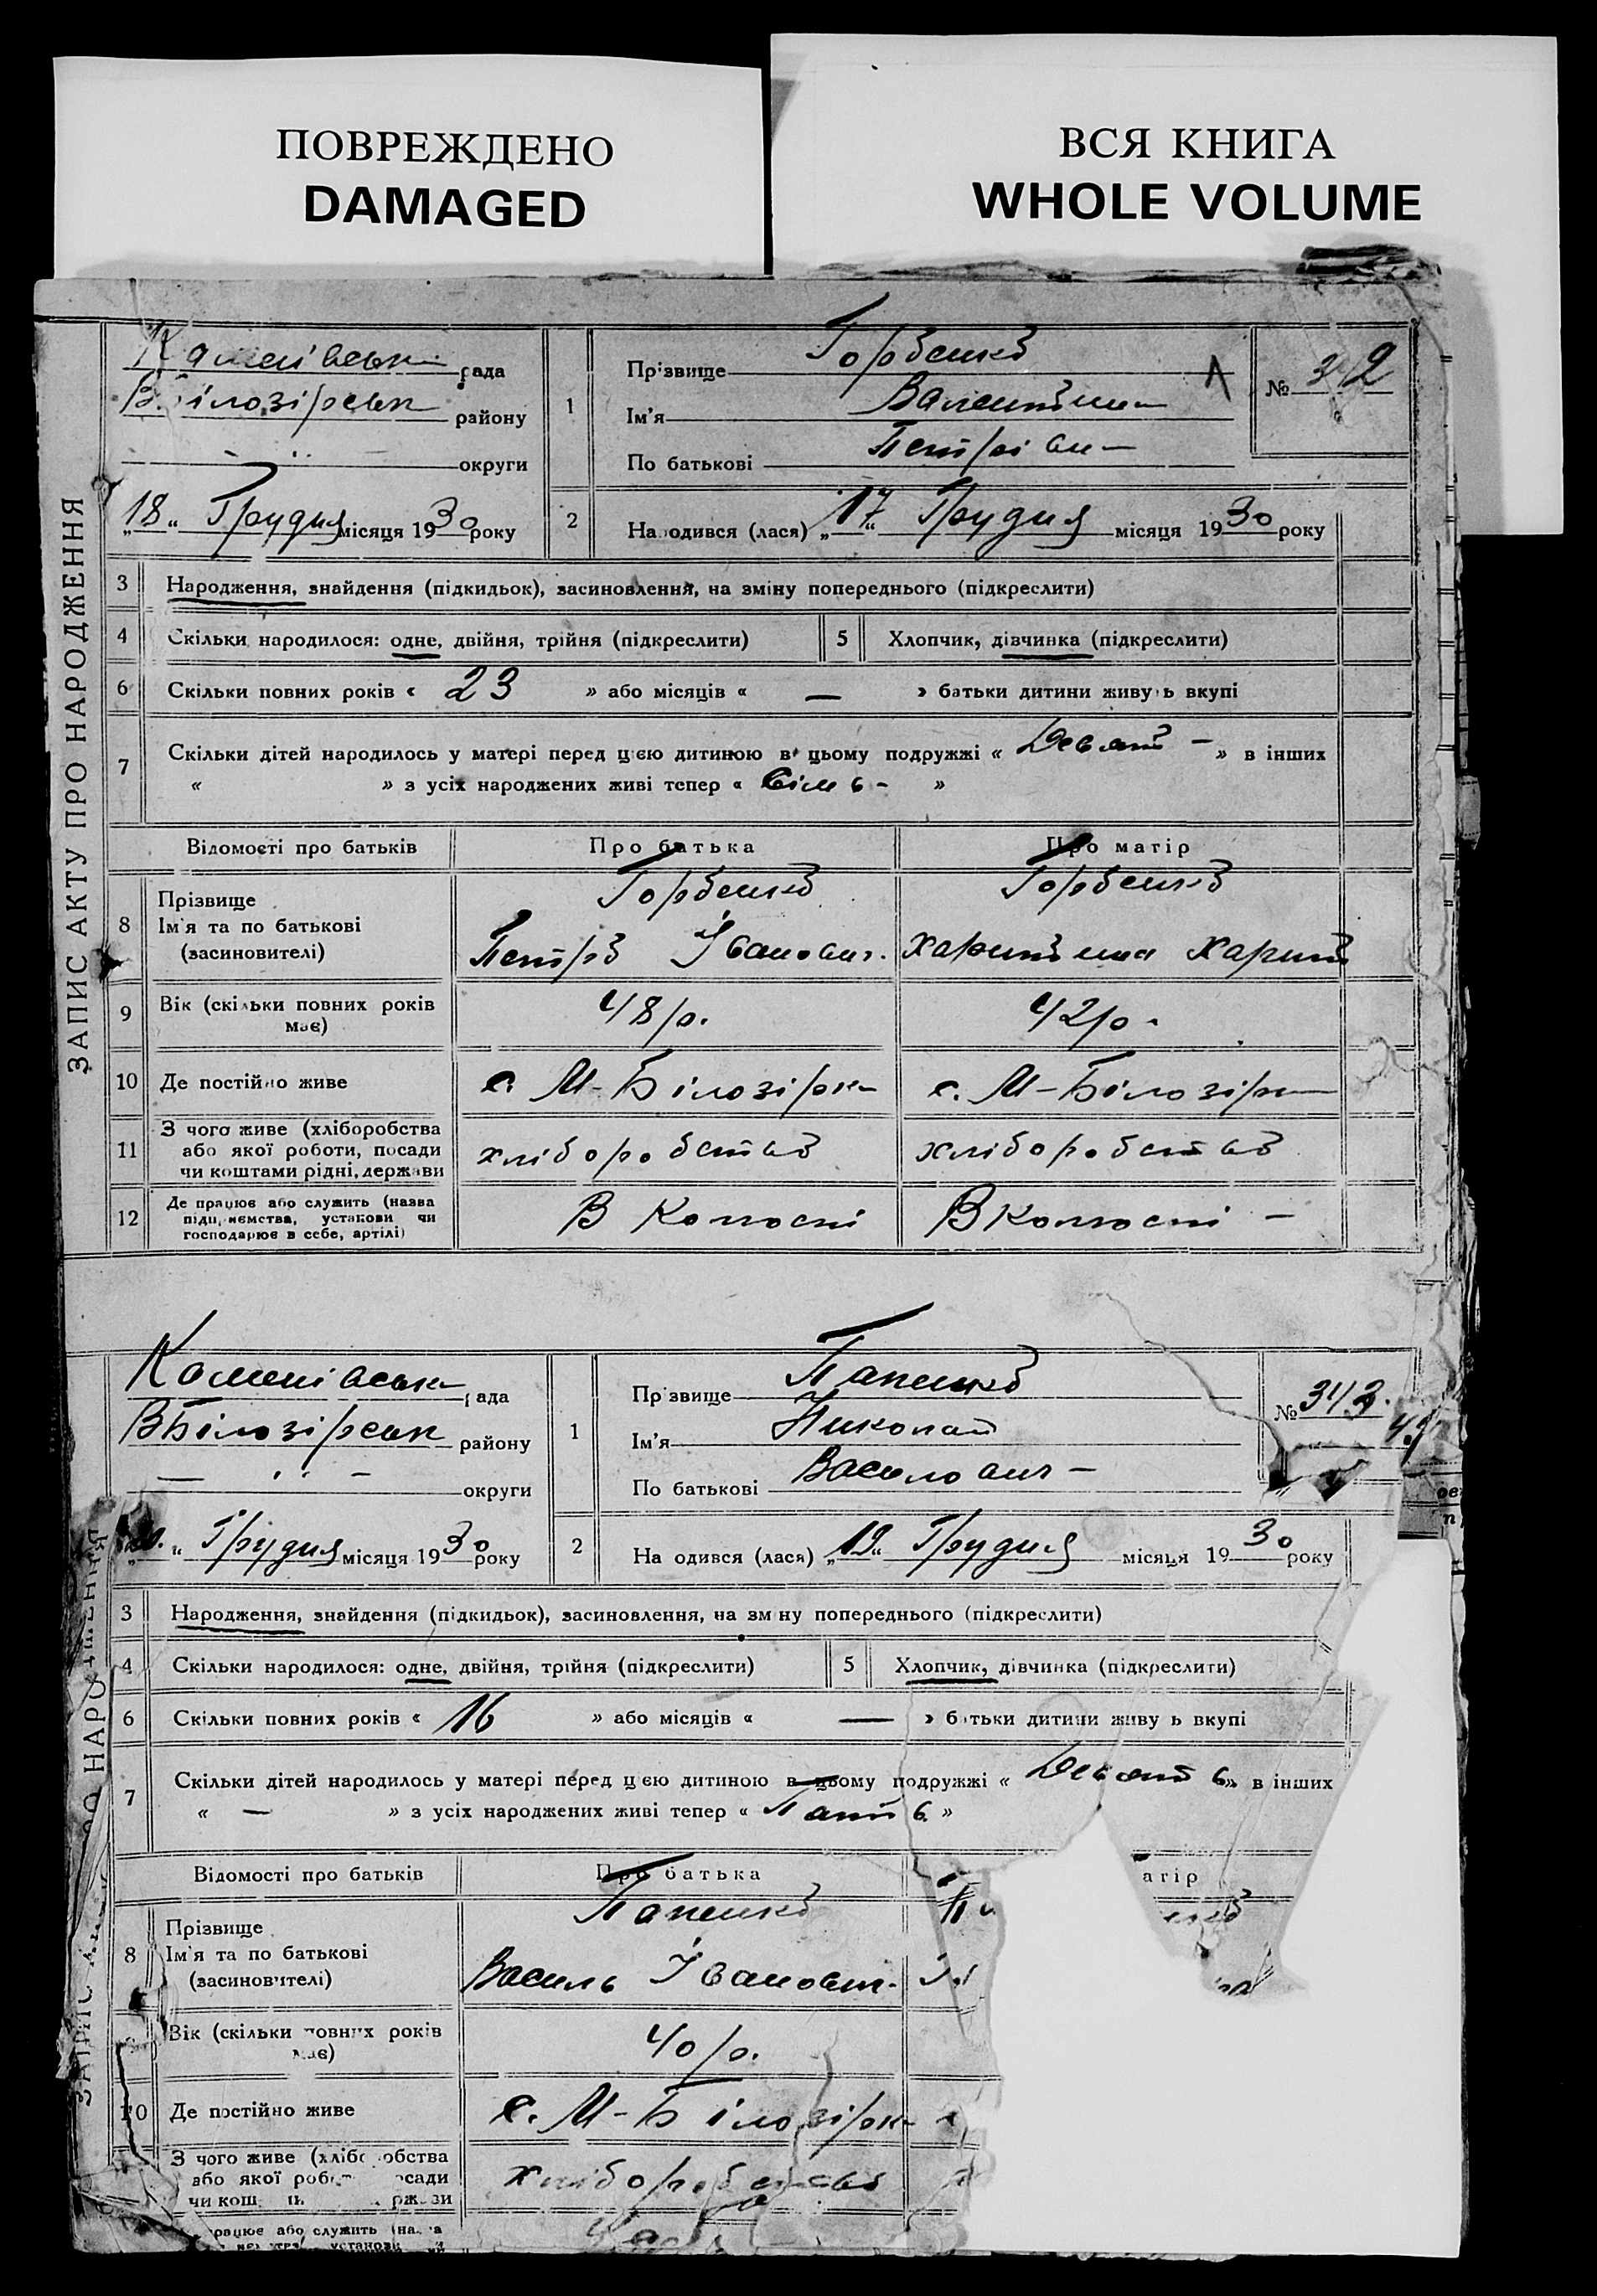 ПОВРЕЖДЕНО
DAMAGED
ВСЯ КНИГА
WHOLE VOLUME
ЗАПИС АКТУ ПРО НАРОДЖЕННЯ
Каменівськ рада
В Білозірськ району
округи
„18“ Грудня місяця 1930 року
1
Прізвище Горбенко
Ім'я Валентина
По батькові Петрівн
№ 342
2
Народився (лася) „17“ Грудня місяця 1930 року
3 Народження, знайдення (підкидьок), засиновлення, на зміну попереднього (підкреслити)
4 Скільки народилося: одне, двійня, трійня (підкреслити) 5 Хлопчик, дівчинка (підкреслити)
6 Скільки повних років « 23 » або місяців « — » батьки дитини живуть вкупі
7 Скільки дітей народилось у матері перед цією дитиною в цьому подружжі « Девят — » в інших
« » з усіх народжених живі тепер « Сімь - »
Відомості про батьків Про батька Про матір
8 Прізвище Горбенко Горбенко
Ім'я та по батькові
(засиновителі) Петро Іванович. Харитина Харит
9 Вік (скільки повних років має) 48 р. 42 р.
10 Де постійно живе с. М-Білозірк с. М-Білозірк
11 З чого живе (хліборобства
або якої роботи, посади
чи коштами рідні, держави хліборобство хліборобство
12 Де працює або служить (назва
підприємства, установи чи
господарює в себе, артілі) В Колгоспі В Колгоспі —
Каменівськ рада
В Білозірськ району
округи
„20.“ Грудня місяця 1930 року
1
Прізвище Папенко
Ім'я Николай
По батькові Василович —
№ 343.
2
Народився (лася) „19“ Грудня місяця 1930 року
3 Народження, знайдення (підкидьок), засиновлення, на зміну попереднього (підкреслити)
4 Скільки народилося: одне, двійня, трійня (підкреслити) 5 Хлопчик, дівчинка (підкреслити)
6 Скільки повних років « 16 » або місяців « — » батьки дитини живуть вкупі
7 Скільки дітей народилось у матері перед цією дитиною в цьому подружжі « Девять » в інших
« — » з усіх народжених живі тепер « Пять »
Відомості про батьків Про батька
8 Прізвище Папенко
Ім'я та по батькові
(засиновителі) Василь Іванович.
Вік (скільки повних років має) 40 р.
10 Де постійно живе с. М-Білозірк
З чого живе (хліборобства
або якої роботи, посади
чи кош хліборобство
працює або служить (назва
установи